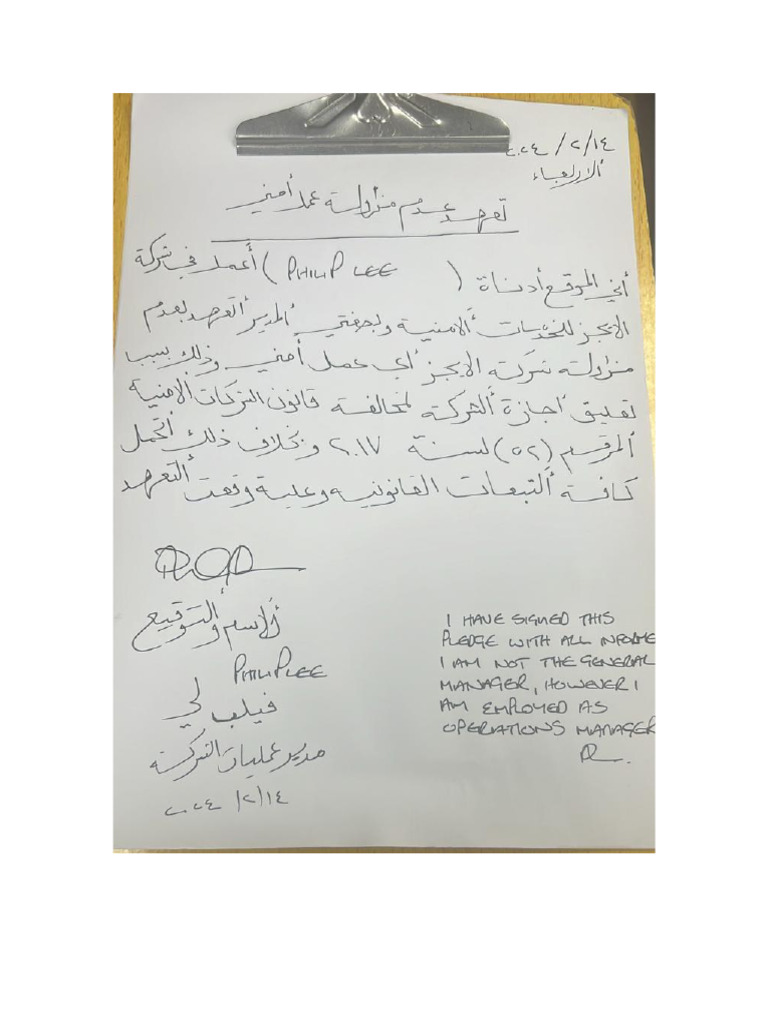 ٢٠٢٤/٢/١٤
الاربعاء
تعهد عدم مزاولة عمل أمني
أني الموقع أدناة (PHILIP LEE) أعمل في شركة
الايجز للخدمات الامنية وبصفتي المدير أتعهد بعدم
مزاولة شركة الايجز أي عمل أمني وذلك بسبب
تعليق اجازة الشركة لمخالفة قانون الشركات الامنية
المرقم (٥٢) لسنة ٢٠١٧ وبخلاف ذلك اتحمل
كافة التبعات القانونيه وعلية وقعت التعهد
الاسم والتوقيع
PHILIP LEE
فيلب لي
مدير عمليات الشركة
٢٠٢٤/٢/١٤
I HAVE SIGNED THIS
PLEDGE WITH ALL INFORME
I AM NOT THE GENERAL
MANAGER, HOWEVER I
AM EMPLOYED AS
OPERATIONS MANAGER